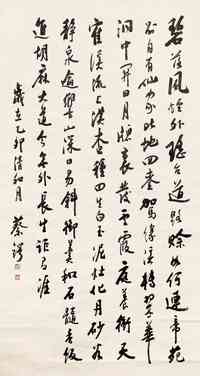 碧落風煙外瑤臺道路賒如何連帝苑
別自有仙家此地回鸞駕緣溪轉翠華
洞中開日月牕裏發雲霞庭養衝天
鶴溪流上漢查種田生白玉泥灶化丹砂谷
靜泉逾響山深日易斜御羹和石髓香飯
進胡麻大道今無外長生詎有涯
歲在乙卯清和月 蔡鍔